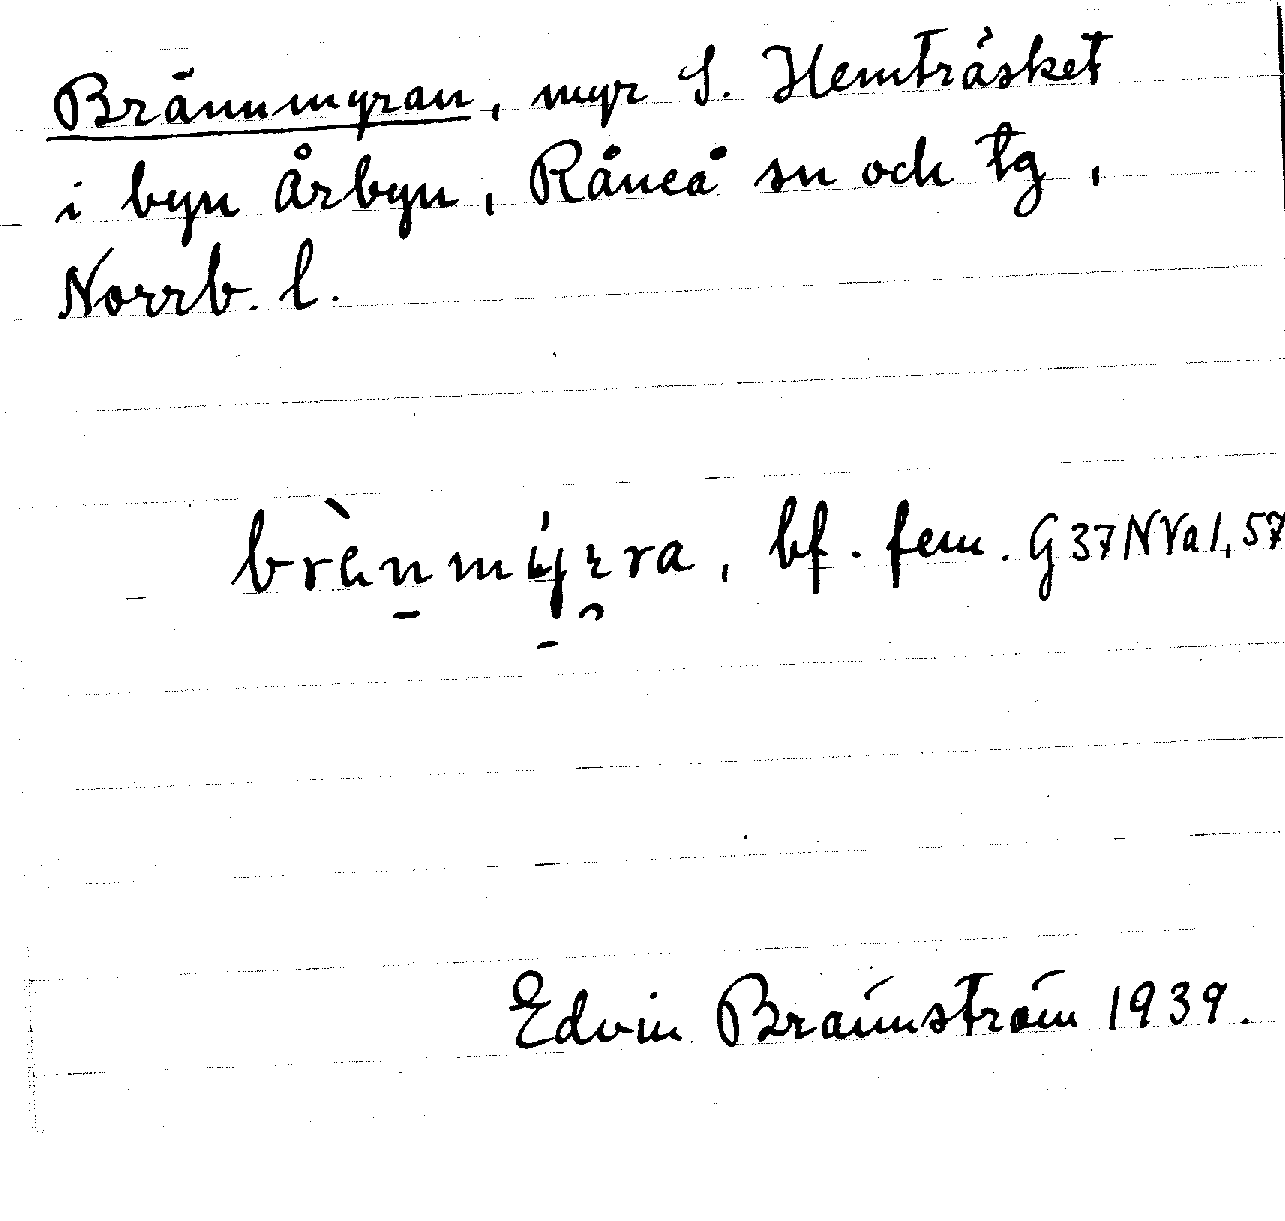 Brännmyran, myr S. Hemträsket
i byn Årbyn, Råneå sn och tg,
Norrb. l.
bf. fem. G37NVa1,57
Edvin Brännström 1939.